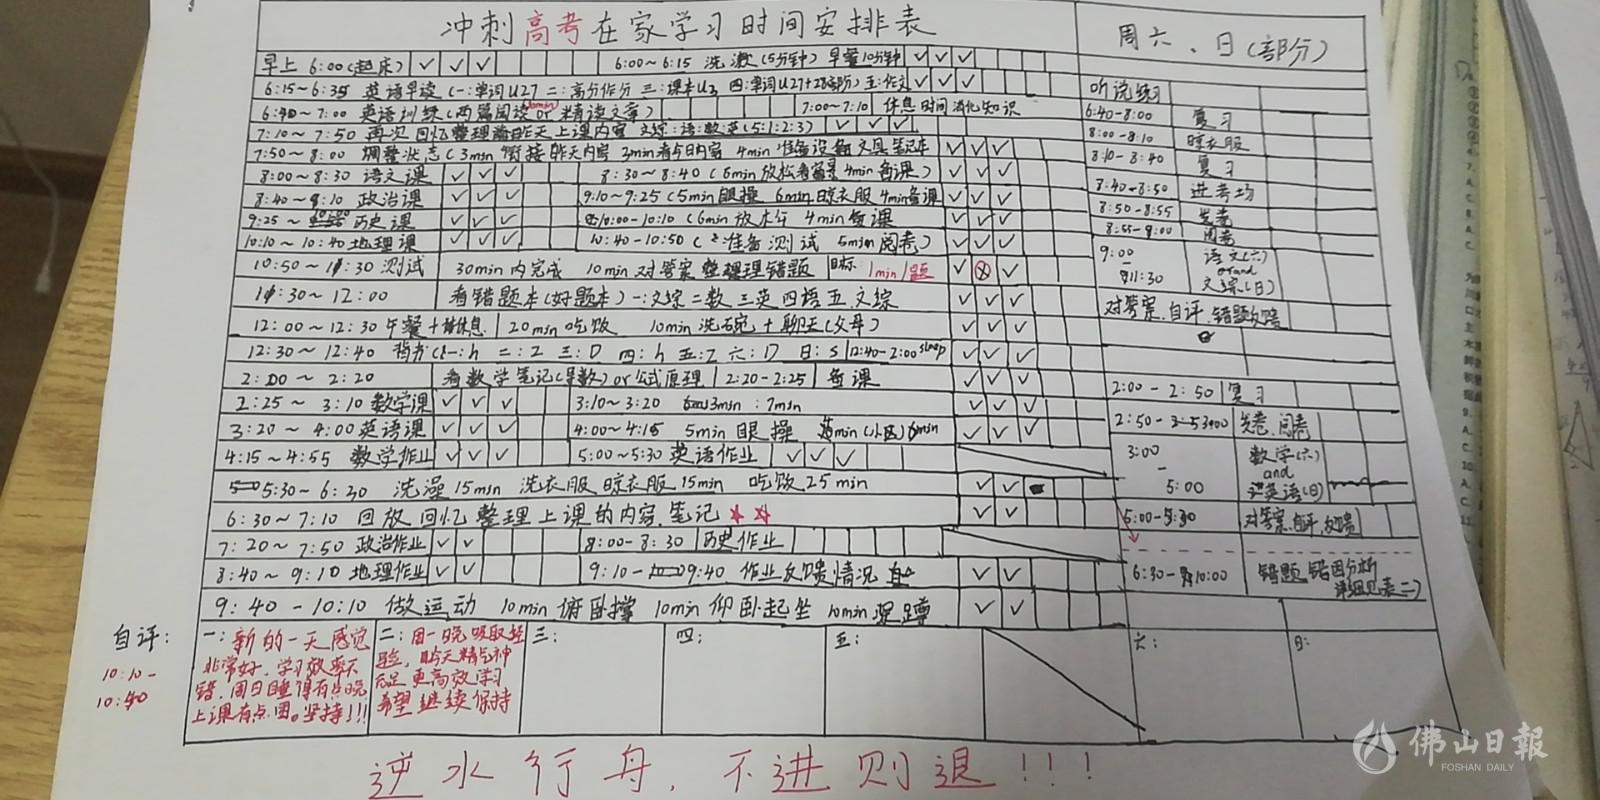 冲刺高考在家学习时间安排表
周六、日(部分)
早上 6:00(起床) ✓ ✓ ✓ 6:00~6:15 洗漱(5分钟) 早餐10分钟 ✓ ✓ ✓
6:15~6:35 英语早读(一:单词U27 二:高分作分 三:课本U3 四:单词U27+28部分) 五:作文 ✓ ✓ ✓
6:40~7:00 英语训练(两篇阅读 or 精读文章) 7:00~7:10 休息时间 消化知识
7:10~7:50 再次回忆整理前昨天上课内容 文综:语:数:英(5:1:2:3) ✓ ✓ ✓
7:50~8:00 调整状态(3min 衔接昨天内容 3min看今日内容 4min 准备设备文具笔记本 ✓ ✓ ✓
8:00~8:30 语文课 ✓ ✓ ✓ 8:30~8:40(6min 放松看窗景 4min备课) ✓ ✓ ✓
8:40~9:10 政治课 ✓ ✓ ✓ 9:10~9:25(5min眼操 6min晾衣服 4min备课 ✓ ✓ ✓
9:25~ 历史课 ✓ ✓ ✓ 10:00-10:10(6min 放水午 4min 备课 ✓ ✓ ✓
10:10~10:40 地理课 ✓ ✓ ✓ 10:40-10:50( 准备测试 5min阅卷) ✓ ✓ ✓
10:50~11:30 测试 30min内完成 10min对答案 整理错题 目标: 1min1题 ✓ ⊗ ✓
11:30~12:00 看错题本(好题本)一:文综 二数 三英 四语 五.文综 ✓ ✓ ✓
12:00~12:30 午餐+休息 20min吃饭 10min洗碗+聊天(父母) ✓ ✓ ✓
12:30~12:40 背书(一:h 二:Z 三:D 四:h 五:Z 六:D 日:S 12:40-2:00 sleep ✓ ✓ ✓
2:00~2:20 看数学笔记(导数)or公式原理 2:20-2:25 备课 ✓ ✓ ✓
2:25~3:10 数学课 ✓ ✓ ✓ 3:10~3:20 3min:7min ✓ ✓ ✓
3:20~4:00 英语课 ✓ ✓ ✓ 4:00~4:15 5min眼操 min(小区) min ✓ ✓ ✓
4:15~4:55 数学作业 ✓ ✓ ✓ 5:00~5:30 英语作业 ✓ ✓ ✓
5:30~6:30 洗澡15min 洗衣服 晾衣服15min 吃饭25min ✓ ✓
6:30~7:10 回放 回忆 整理上课的内容.笔记 ☆ ☆ ✓ ✓
7:20~7:50 政治作业 ✓ ✓ 8:00-8:30 历史作业
8:40~9:10 地理作业 ✓ ✓ 9:10-9:40 作业反馈情况 ✓ ✓
9:40-10:10 做运动 10min俯卧撑 10min仰卧起坐 10min深蹲 ✓ ✓
听说练习
6:40-8:00 复习
8:00-8:10 晾衣服
8:10-8:40 复习
8:40-8:50 进考场
8:50-8:55 发卷
8:55-9:00 阅卷
9:00 语文(六)
- orand
11:30 文综(日)
对答案.自评.错题反馈
2:00-2:50 复习
2:50-3:00 发卷.阅卷
3:00 数学(六)
- and
5:00 英语(日)
5:00-5:30 对答案.自评.反馈
6:30-10:00 错题 错因分析
详细见表二)
自评:
10:10-
10:40
一:新的一天感觉
非常好.学习效率不
错.周日睡得有点晚
上课有点困。坚持!!!
二:周一晚吸取经
验,昨天精气神
充足 更高效学习
希望继续保持
三:
四:
五:
六:
日:
逆水行舟,不进则退!!!
佛山日報
FOSHAN DAILY